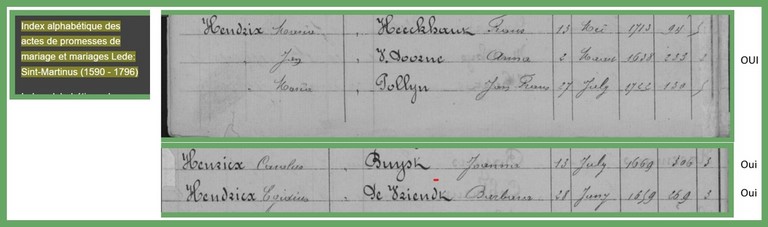 Index alphabétique des
actes de promesses de
mariage et mariages Lede:
Sint-Martinus (1590 - 1796)
Hendrix Maria , Heeckhaut Frans 13 Mei 1713 94
Jan , V. Hoorne Anna 2 1638 233 3
Maria , Pollyn Jan Frans 27 July 130
OUI
Hendricx , Buysk Joanna 13 July 1669 306 3 Oui
Hendricx Egidius , De Vriendt Barbara 28 Juny 1659 269 3 Oui